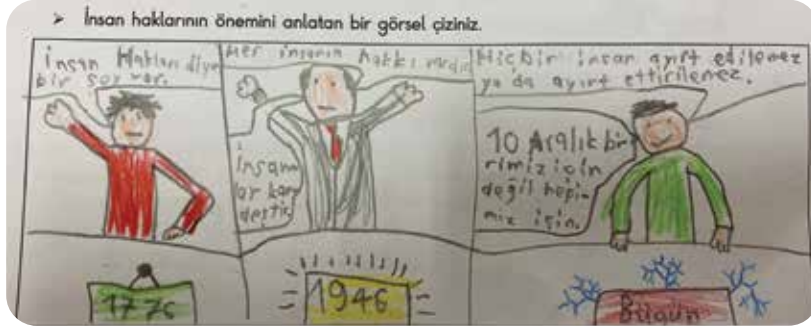 ➤ İnsan haklarının önemini anlatan bir görsel çiziniz.
İnsan Hakları diye
bir şey var.
Her insanın hakkı vardır
İnsan
lar kar
deştir
Hiçbir insan ayırt edilemez
ya da ayırt ettirilemez.
10 Aralık bi
rimiz için
değil hepi-
miz için.
1776
1946
Bugün